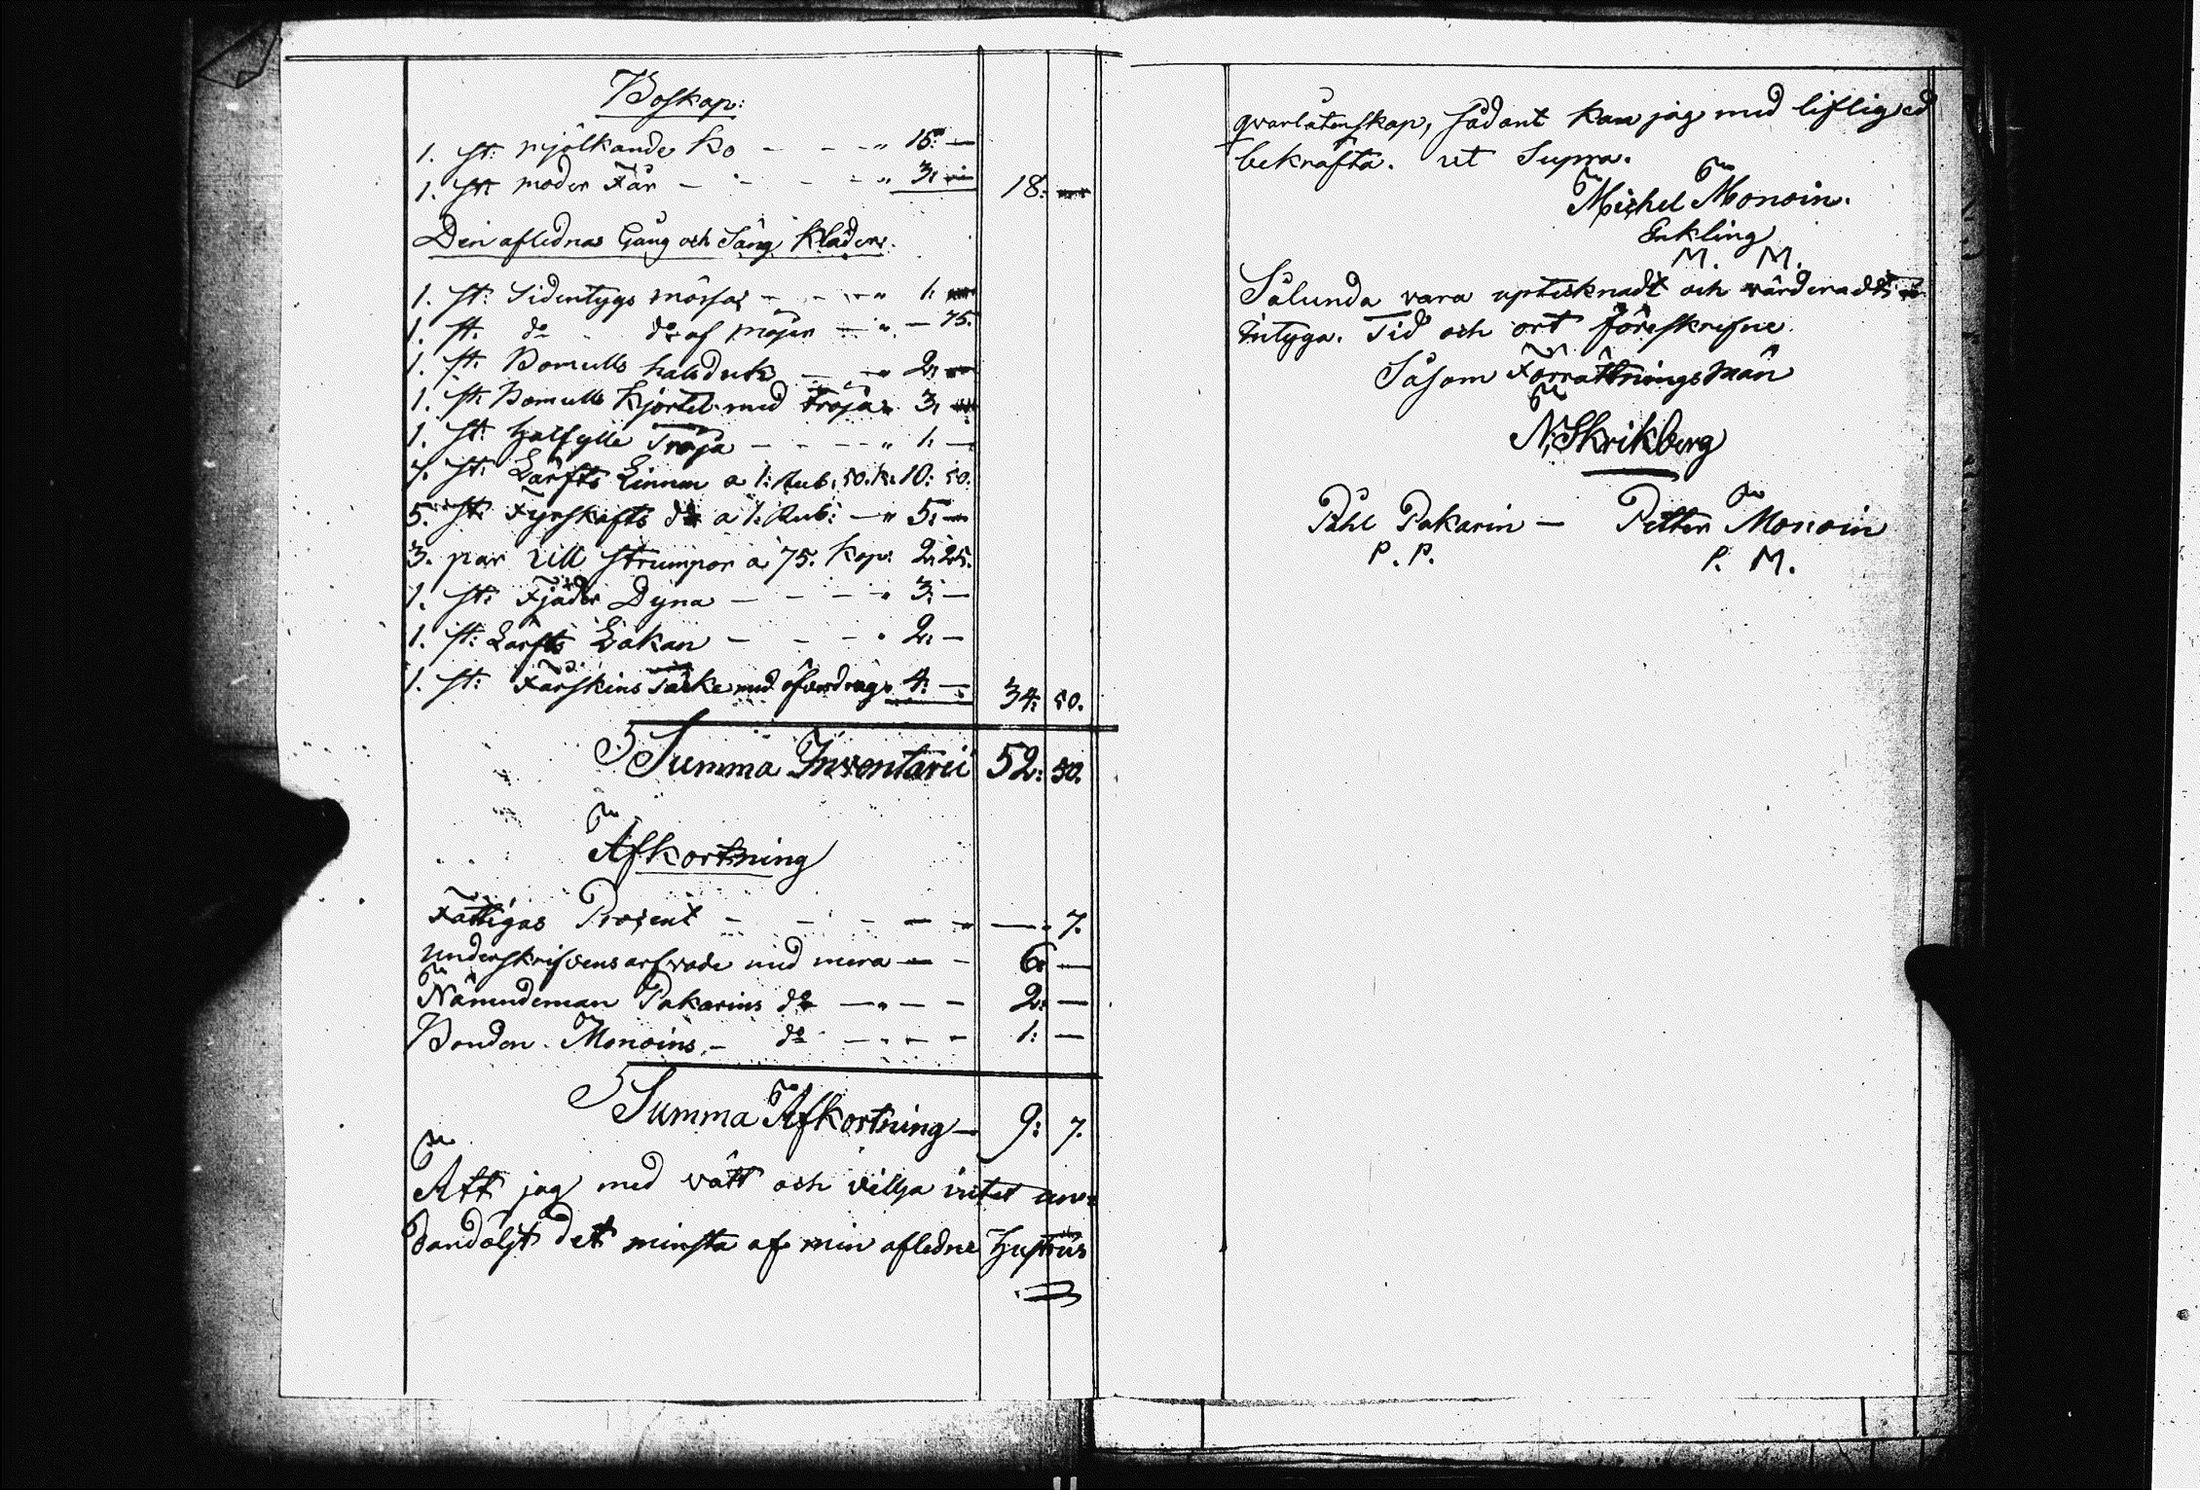 Boskap:
1. st: mjölkande Ko - - - " 15: —
1. st: moder Får - - - - " 3: — 18: —
Den aflednas Gång och Säng Kläder:
1. st: Sidentygs mössa - - - " 1: —
1. st. do do af mojer - " — 75.
1. st: Bomulls halsduk — " 2: —
1. st: Bomulls Kjortel med Tröja " 3: —
1. st: Halfylle Tröja - - - - " 1: —
7. st: Lärfts Linnen a 1: Rub: 50. K: 10: 50.
5. st: Fyrskafts do a 1: Rub: — " 5: —
3. par Ull strumpor a 75. Kop: 2: 25.
1. st: Fjäder Dyna - - - - " 3: —
1. st: Lärfts Lakan - - - " 2: —
1. st: Fårskins Täcke med öfverdrag " 4: — 34: 50.
Summa Inventarii 52: 50.
Afkortning
Fattigas Prosent - - - - " — " 7.
Underskrifvens arfvode med mera — - 6: —
Nämndeman Pakarins do — " — - 2: —
Bonden Monoins - do — - - - 1: —
Summa Afkortning — 9: 7.
Att jag med vätt och villja intet un-
dandöljt det minsta af min afledne Hustrus
qvarlåtenskap, sådant kan jag med liflig ed
bekräfta. ut Supra.
Michel Monoin.
Enkling
M. M.
Sålunda vara uptecknadt och värderadt
intyga. Tid och ort föreskrefne.
Såsom Förrättningsmän
N. Skrikberg
Påhl Pakarin — Petter Monoin
P. P. P. M.